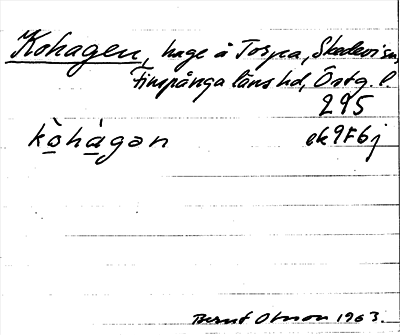 Kohagen, hage å Torpa, Skedevi sn,
Finspånga läns hd, Östg. l.
295
kò̱há̱gən ek 9F6j
Bernt Olsson 1963.